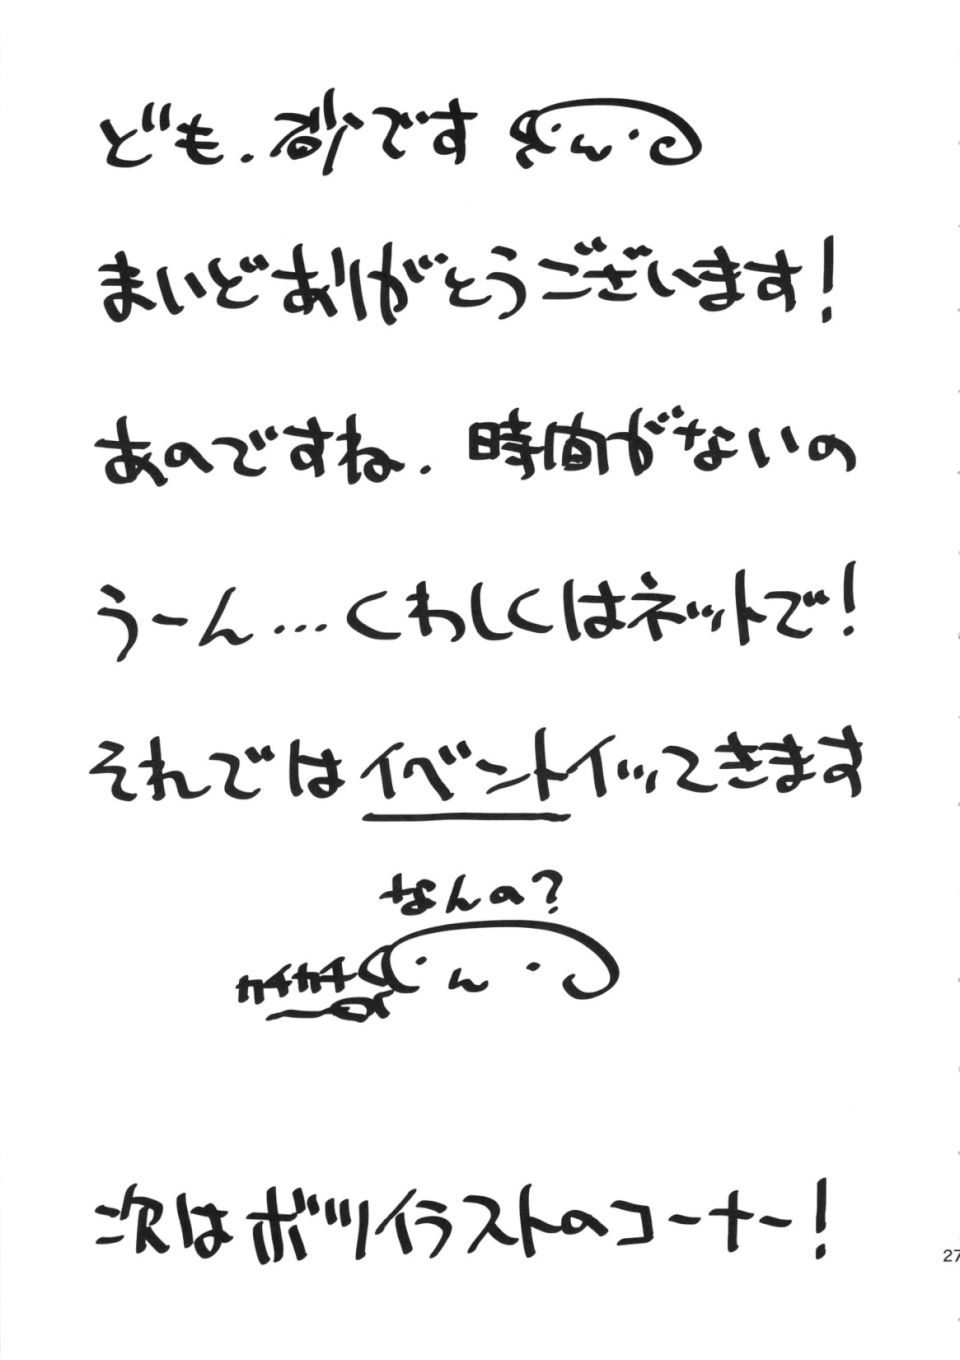 ども.砂です
まいどありがとうございます!
あのですね.時間がないの
うーん...くわしくはネットで!
それではイベントイッてきます
なんの?
カチカチ
次はボツイラストのコーナー!
27